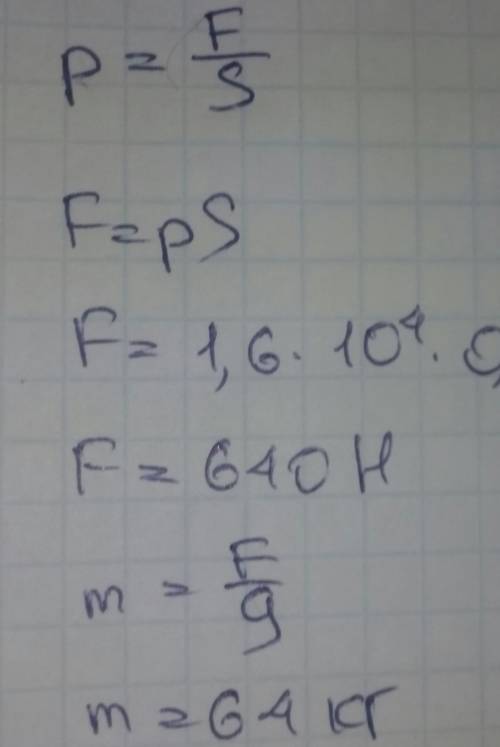 p = F/S
F = pS
F = 1,6 · 10⁴ · 0,
F = 640 Н
m = F/g
m = 64 кг